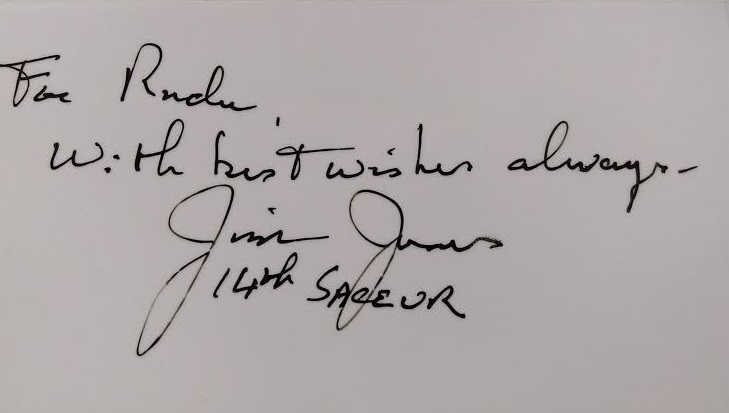 For Radu,
With best wishes always-
Jim Jones
14th SACEUR